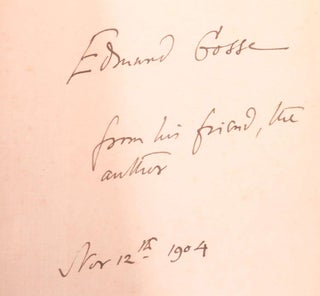 Edmund Gosse
from his friend, the
author
Nov 12th 1904